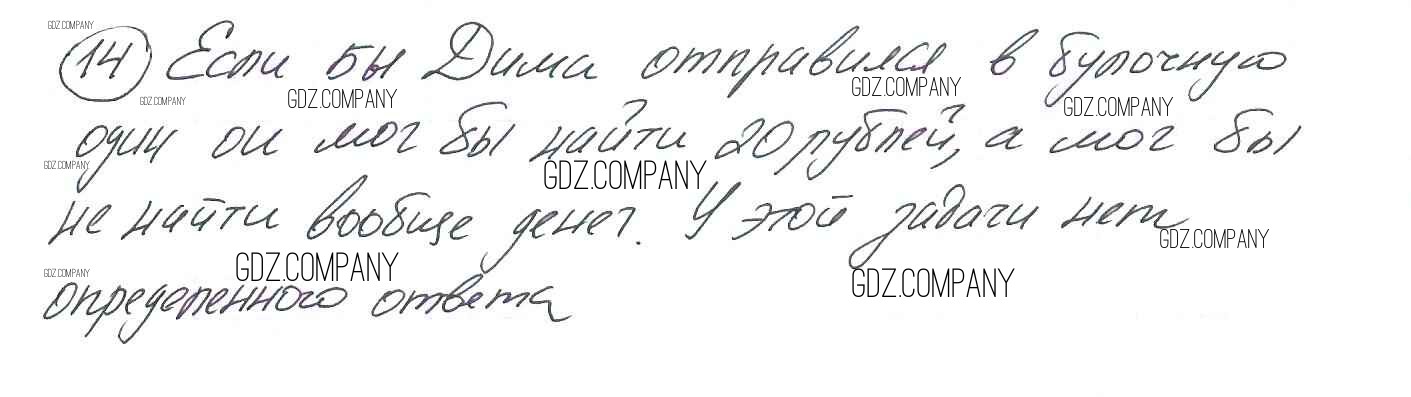 GDZ.COMPANY
14 Если бы Дима отправился в булочную
GDZ.COMPANY GDZ.COMPANY GDZ.COMPANY GDZ.COMPANY
один он мог бы найти 20 рублей, а мог бы
GDZ.COMPANY GDZ.COMPANY
не найти вообще денег. У этой задачи нет
GDZ.COMPANY GDZ.COMPANY GDZ.COMPANY GDZ.COMPANY
определенного ответа